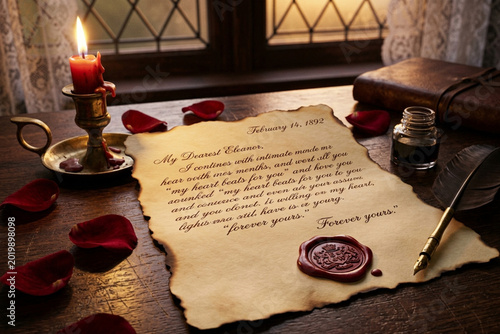 February 14, 1892
My Dearest Eleanor,
I contines with intimate munde mr
hearn wites mes months, and west all you
"my heart beats for you" and hove you
aounked "my heart beats for you to you
and conuence and even air your assum.
and you clonet. It willing on my heart.
lights ana still have is a young.
"forever yours." Forever yours."
Adobe Stock | #2019898098